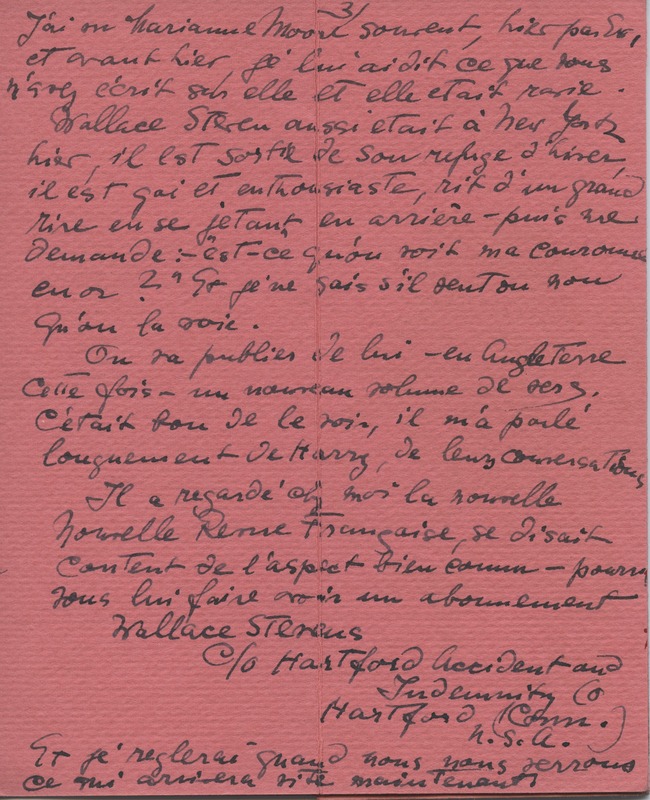 3/
J'ai vu Marianne Moore souvent, hier par Ex,
et avant hier je lui ai dit ce que vous
n'avez écrit sur elle et elle etait ravie.
Wallace Steven aussi etait à New York
hier, il est sortie de son refuge d'hiver,
il est gai et enthousiaste, rit d'un grand
rire en se jetant en arrière - puis me
demande :- "est-ce qu'on voit ma couronne
en or ?" Et je ne sais s'il veut ou non
qu'on la voie.
On va publier de lui - en Angleterre
cette fois - un nouveau volume de vers.
C'était bon de le voir, il m'a parlé
longuement de Harry, de leurs conversations
Il a regardé chez moi la nouvelle
Nouvelle Revue Française, se disait
content de l'aspect bien connu - pourriez
vous lui faire avoir un abonnement
Wallace Stevens
c/o Hartford Accident and
Indemnity Co
Hartford (Conn.)
U.S.A.
Et je réglerai quand nous nous verrons
ce qui arrivera vite maintenant